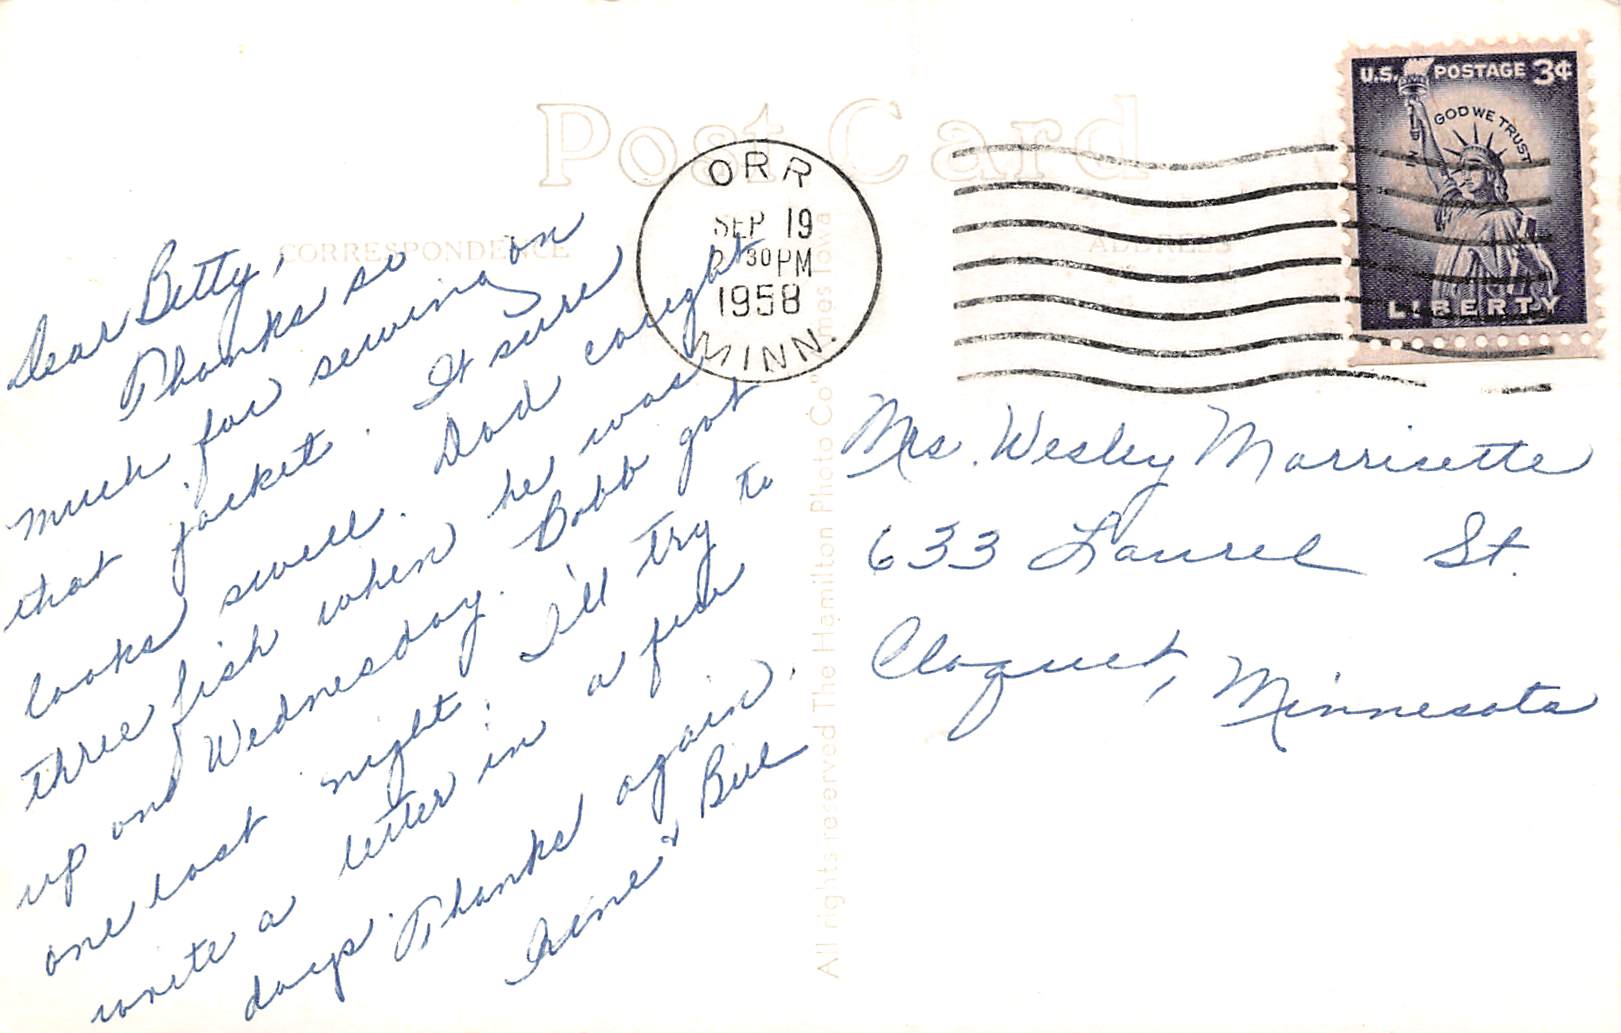 Post Card
CORRESPONDENCE
ADDRESS
ORR
SEP 19
2 30 PM
1958
MINN.
U.S. POSTAGE 3¢
IN GOD WE TRUST
LIBERTY
Dear Betty,
Thanks so
much for sewing on
that jacket. It sure
looks swell. Dad caught
three fish when he was
up on Wednesday. Bobb got
one last night. I'll try to
write a letter in a few
days. Thanks again.
Irene & Bill
All rights reserved The Hamilton Photo Co Ames Iowa
Mrs. Wesley Morrisette
633 Laurel St.
Cloquet, Minnesota